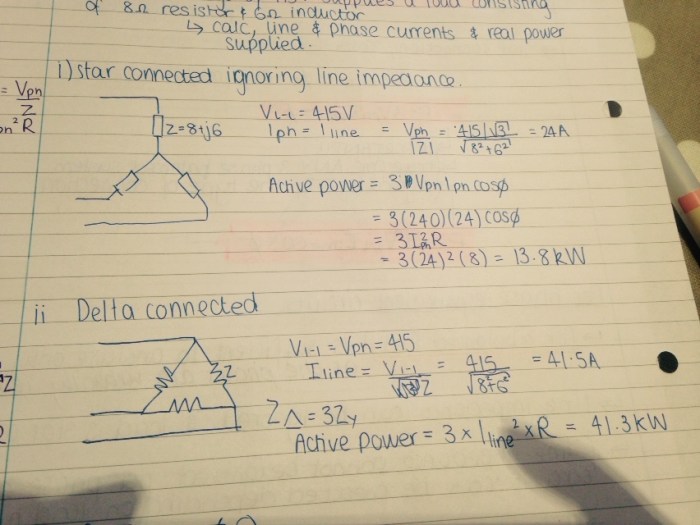 supplies a load consisting
of 8Ω resistor & 6Ω inductor
↳ calc, line & phase currents & real power
supplied.
i) star connected ignoring line impedance.
= Vpn
Z
pn² R
Z=8+j6
VL-L = 415V
Iph = Iline = Vph / |Z| = 415/√3 / √8²+6² = 24A
Active power = 3 Vpn Ipn cosφ
= 3(240)(24) cosφ
= 3I²ph R
= 3(24)²(8) = 13.8kW
ii Delta connected
Vl-l = Vpn = 415
Iline = Vl-l / Z = 415 / √8²+6² = 41.5A
Z
Z△ = 3Zy
Active power = 3 x Iline² x R = 41.3kW